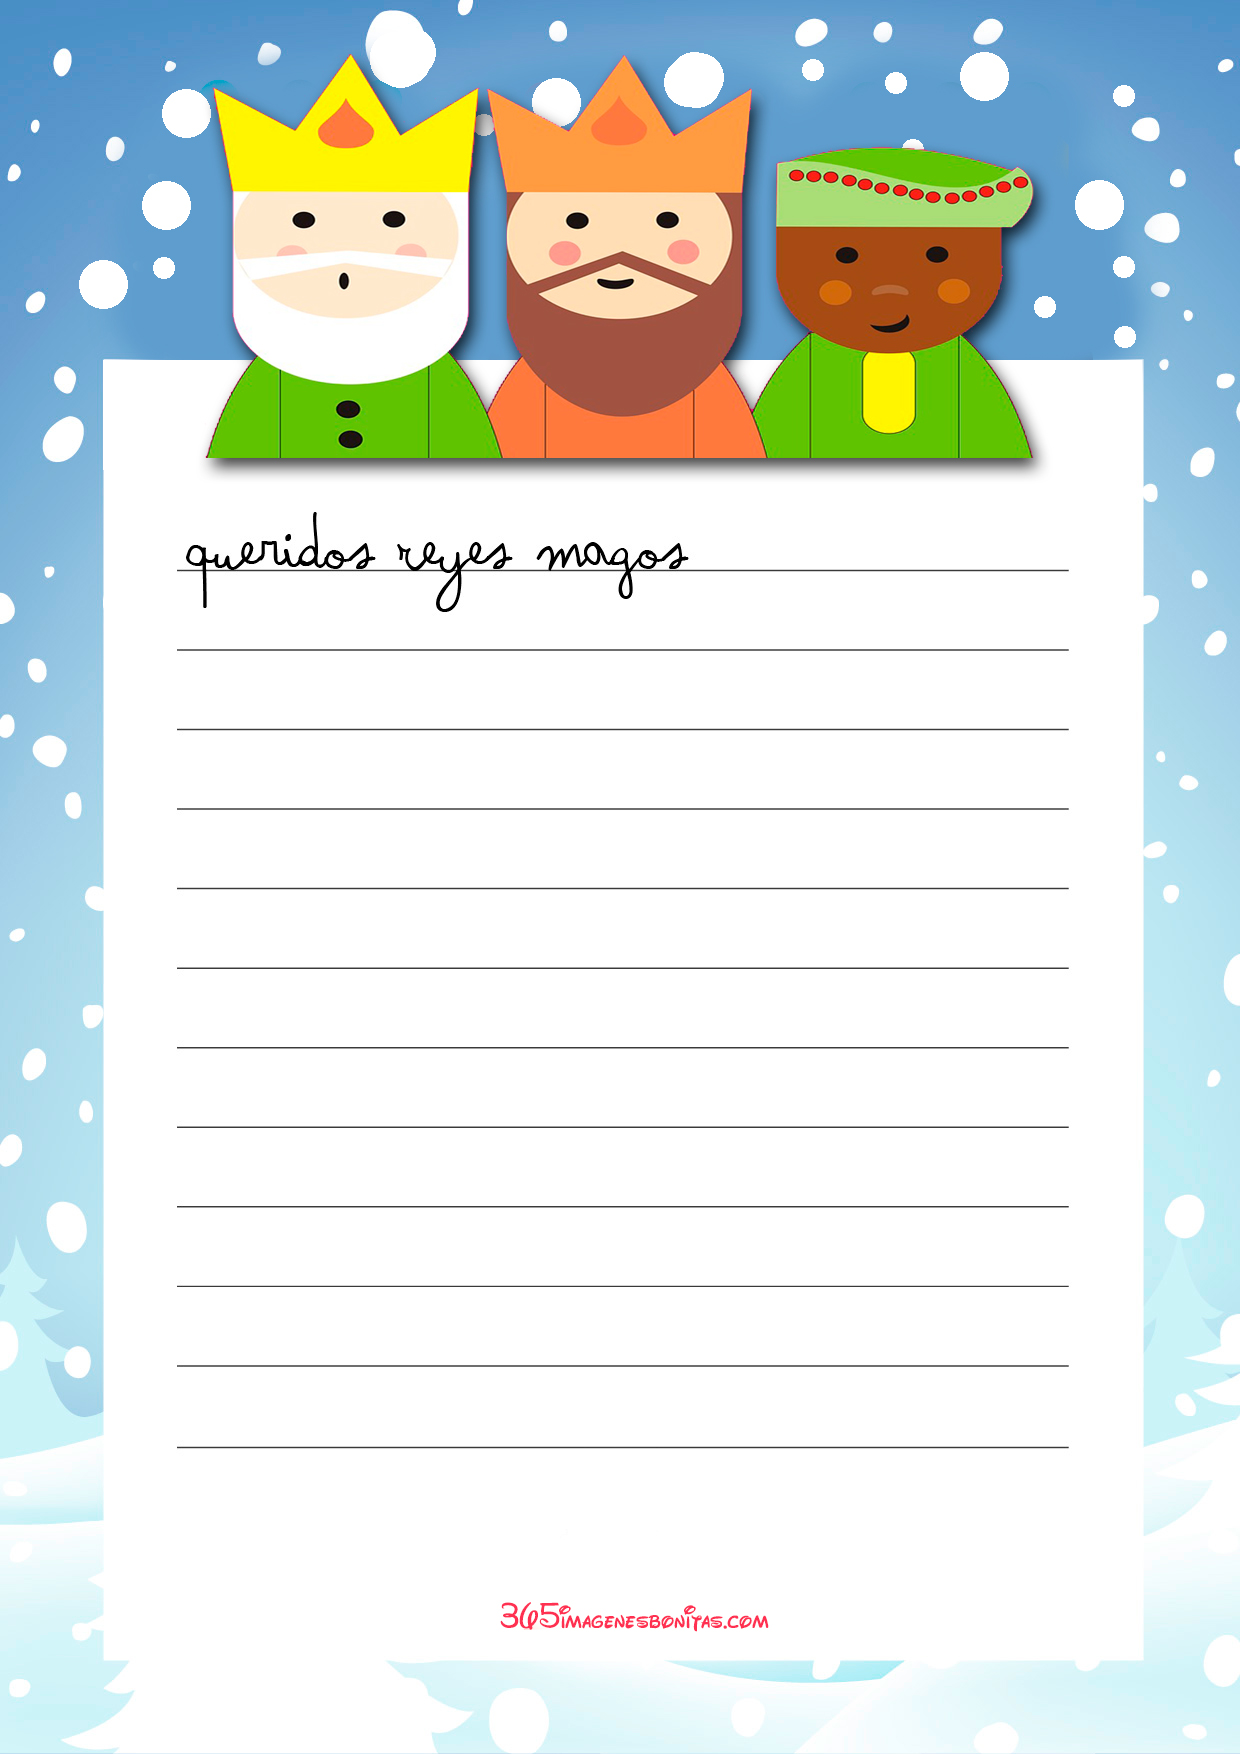 queridos reyes magos
365imagenesbonitas.com